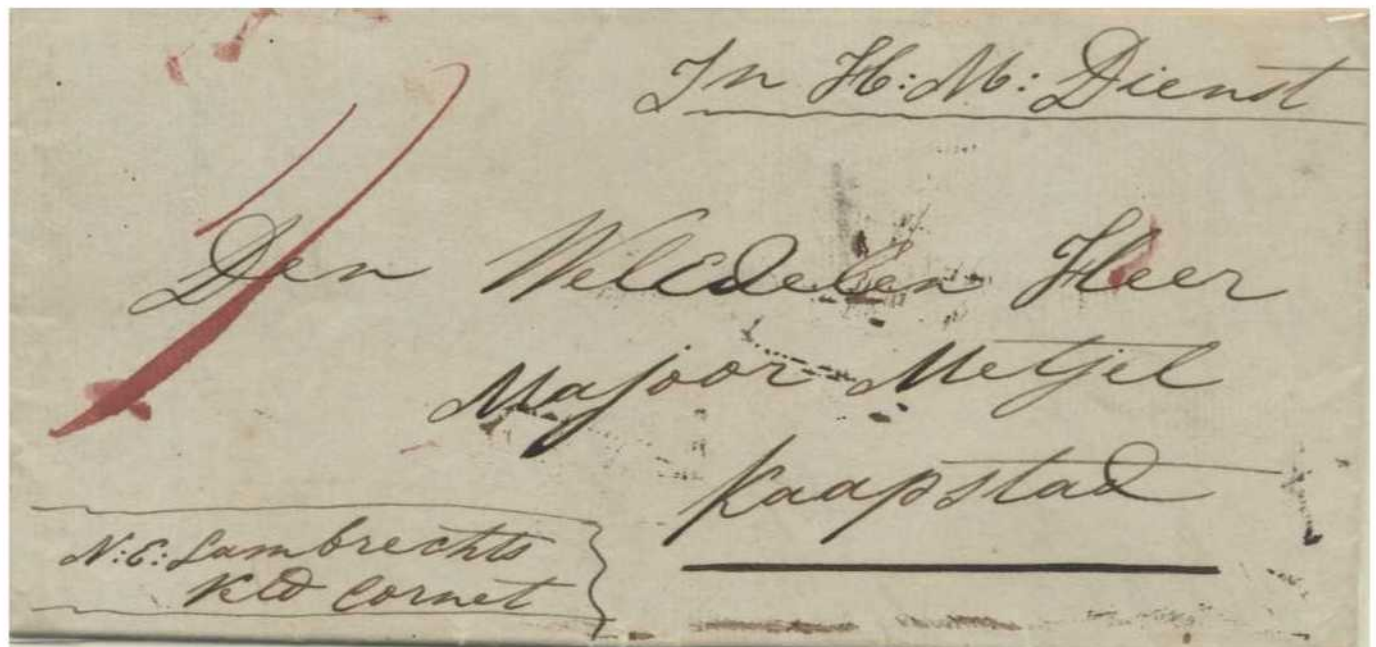 In H: M: Dienst
Den WelEdelen Heer
Majoor Metjel
Kaapstad
N: C: Lambrechts
Cornet